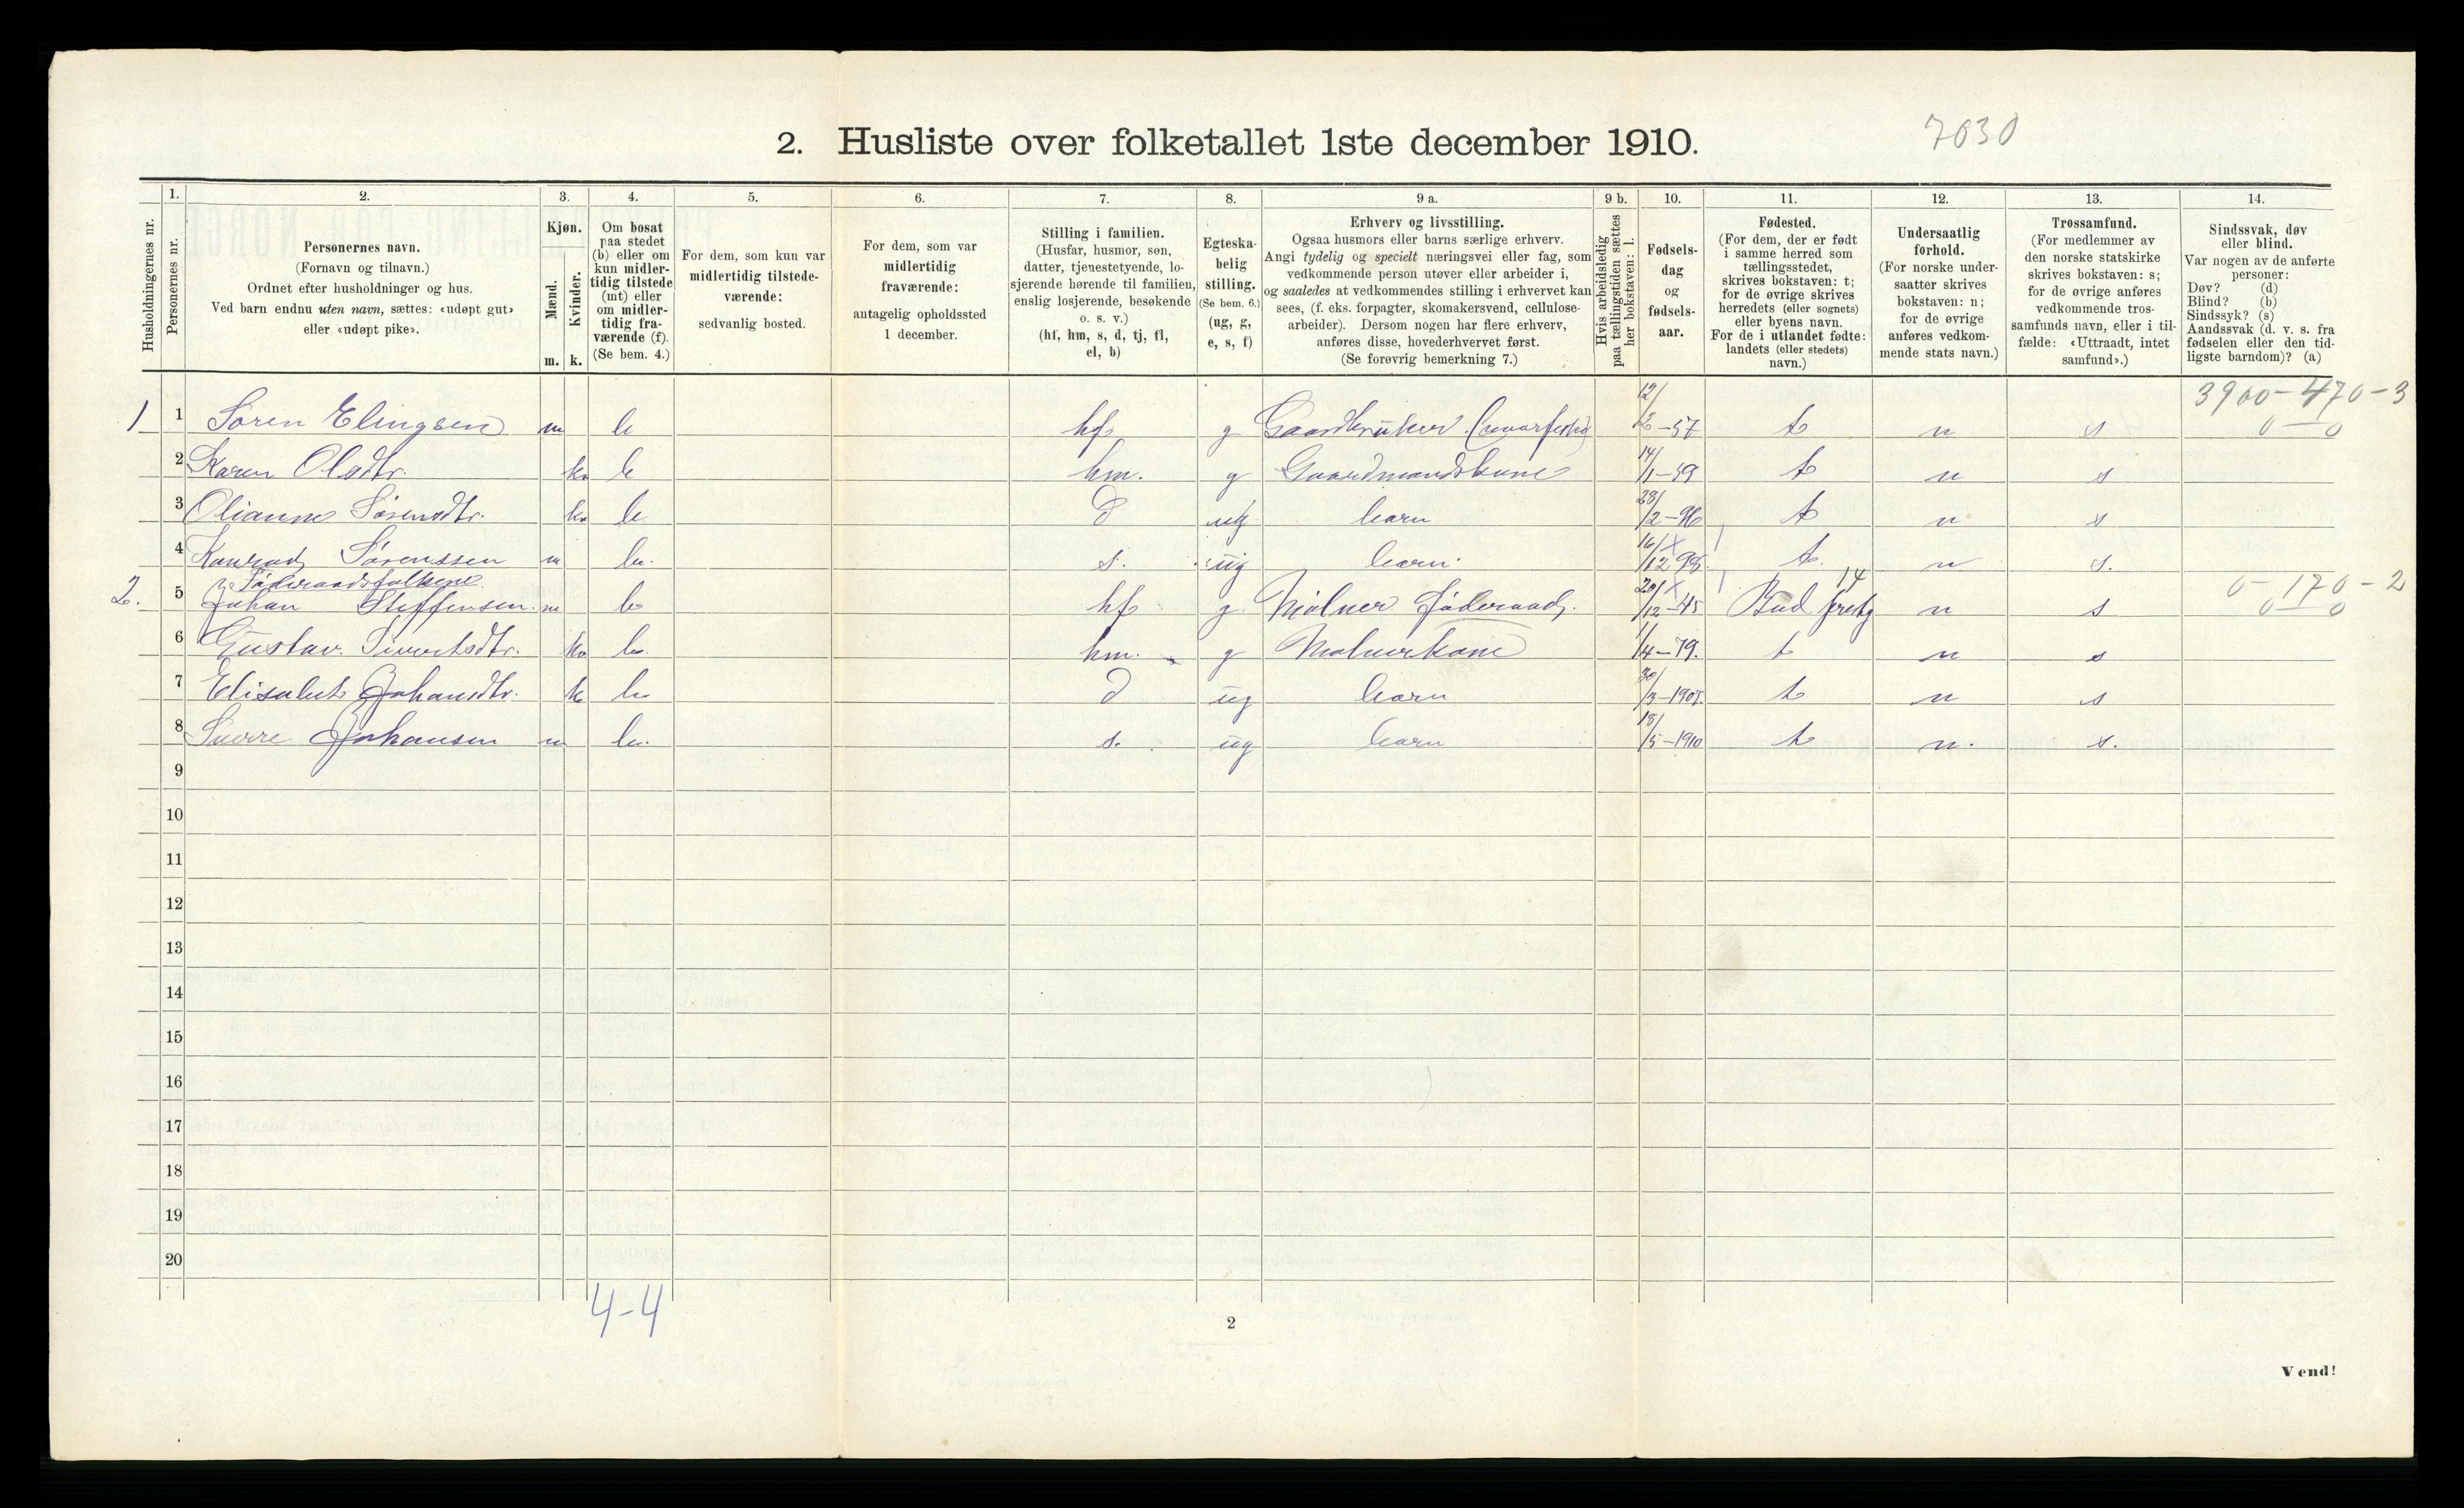 2. Husliste over folketallet 1ste december 1910.
7030
Husholdningernes nr.
1.
Personernes nr.
2.
Personernes navn.
(Fornavn og tilnavn.)
Ordnet efter husholdninger og hus.
Ved barn endnu uten navn, sættes: «udøpt gut»
eller «udøpt pike».
3.
Kjøn.
Mænd.
Kvinder.
m. k.
4.
Om bosat
paa stedet
(b) eller om
kun midler-
tidig tilstede
(mt) eller
om midler-
tidig fra-
værende (f).
(Se bem. 4.)
5.
For dem, som kun var
midlertidig tilstede-
værende:
sedvanlig bosted.
6.
For dem, som var
midlertidig
fraværende:
antagelig opholdssted
1 december.
7.
Stilling i familien.
(Husfar, husmor, søn,
datter, tjenestetyende, lo-
sjerende hørende til familien,
enslig losjerende, besøkende
o. s. v.)
(hf, hm, s, d, tj, fl,
el, b)
8.
Egteska-
belig
stilling.
(Se bem. 6.)
(ug, g,
e, s, f)
9 a.
Erhverv og livsstilling.
Ogsaa husmors eller barns særlige erhverv.
Angi tydelig og specielt næringsvei eller fag, som
vedkommende person utøver eller arbeider i,
og saaledes at vedkommendes stilling i erhvervet kan
sees, (f. eks. forpagter, skomakersvend, cellulose-
arbeider). Dersom nogen har flere erhverv,
anføres disse, hovederhvervet først.
(Se forøvrig bemerkning 7.)
9 b.
Hvis arbeidsledig
paa tællingstiden sættes
her bokstaven: l.
10.
Fødsels-
dag
og
fødsels-
aar.
11.
Fødested.
(For dem, der er født
i samme herred som
tællingsstedet,
skrives bokstaven: t;
for de øvrige skrives
herredets (eller sognets)
eller byens navn.
For de i utlandet fødte:
landets (eller stedets)
navn.)
12.
Undersaatlig
forhold.
(For norske under-
saatter skrives
bokstaven: n;
for de øvrige
anføres vedkom-
mende stats navn.)
13.
Trossamfund.
(For medlemmer av
den norske statskirke
skrives bokstaven: s;
for de øvrige anføres
vedkommende tros-
samfunds navn, eller i til-
fælde: «Uttraadt, intet
samfund».)
14.
Sindssvak, døv
eller blind.
Var nogen av de anførte
personer:
Døv? (d)
Blind? (b)
Sindssyk? (s)
Aandssvak (d. v. s. fra
fødselen eller den tid-
ligste barndom)? (a)
3900-470-3
1 1 Søren Elingsen m b hf g Gaardbruker 12/2-57 t n s 0-0
2 Karen Olsdtr. k b hm. g Gaardmandskone 14/1-59 t n s
3 Olianna Sørensdtr. k b d ug barn 28/2-96 t n s
4 Konrad Sørenssen m b. s. ug barn. 16/12 98. t. n s.
Føderaadsfolkene
2. 5 Johan Steffensen m b hf g Mølner Føderaad. 20/12-45 Bud 14 n s 0-170-2
0-0
6 Gustav. Sivertsdtr. k b. hm. g Mølnerkone 1/4-79. t n s
7 Elisabet Johansdtr. k b d ug barn 30/3-1908. t n s
8 Sverre Johansen m b. s. ug barn 18/5-1910 t n. s.
9
10
11
12
13
14
15
16
17
18
19
20
4-4
2
Vend!